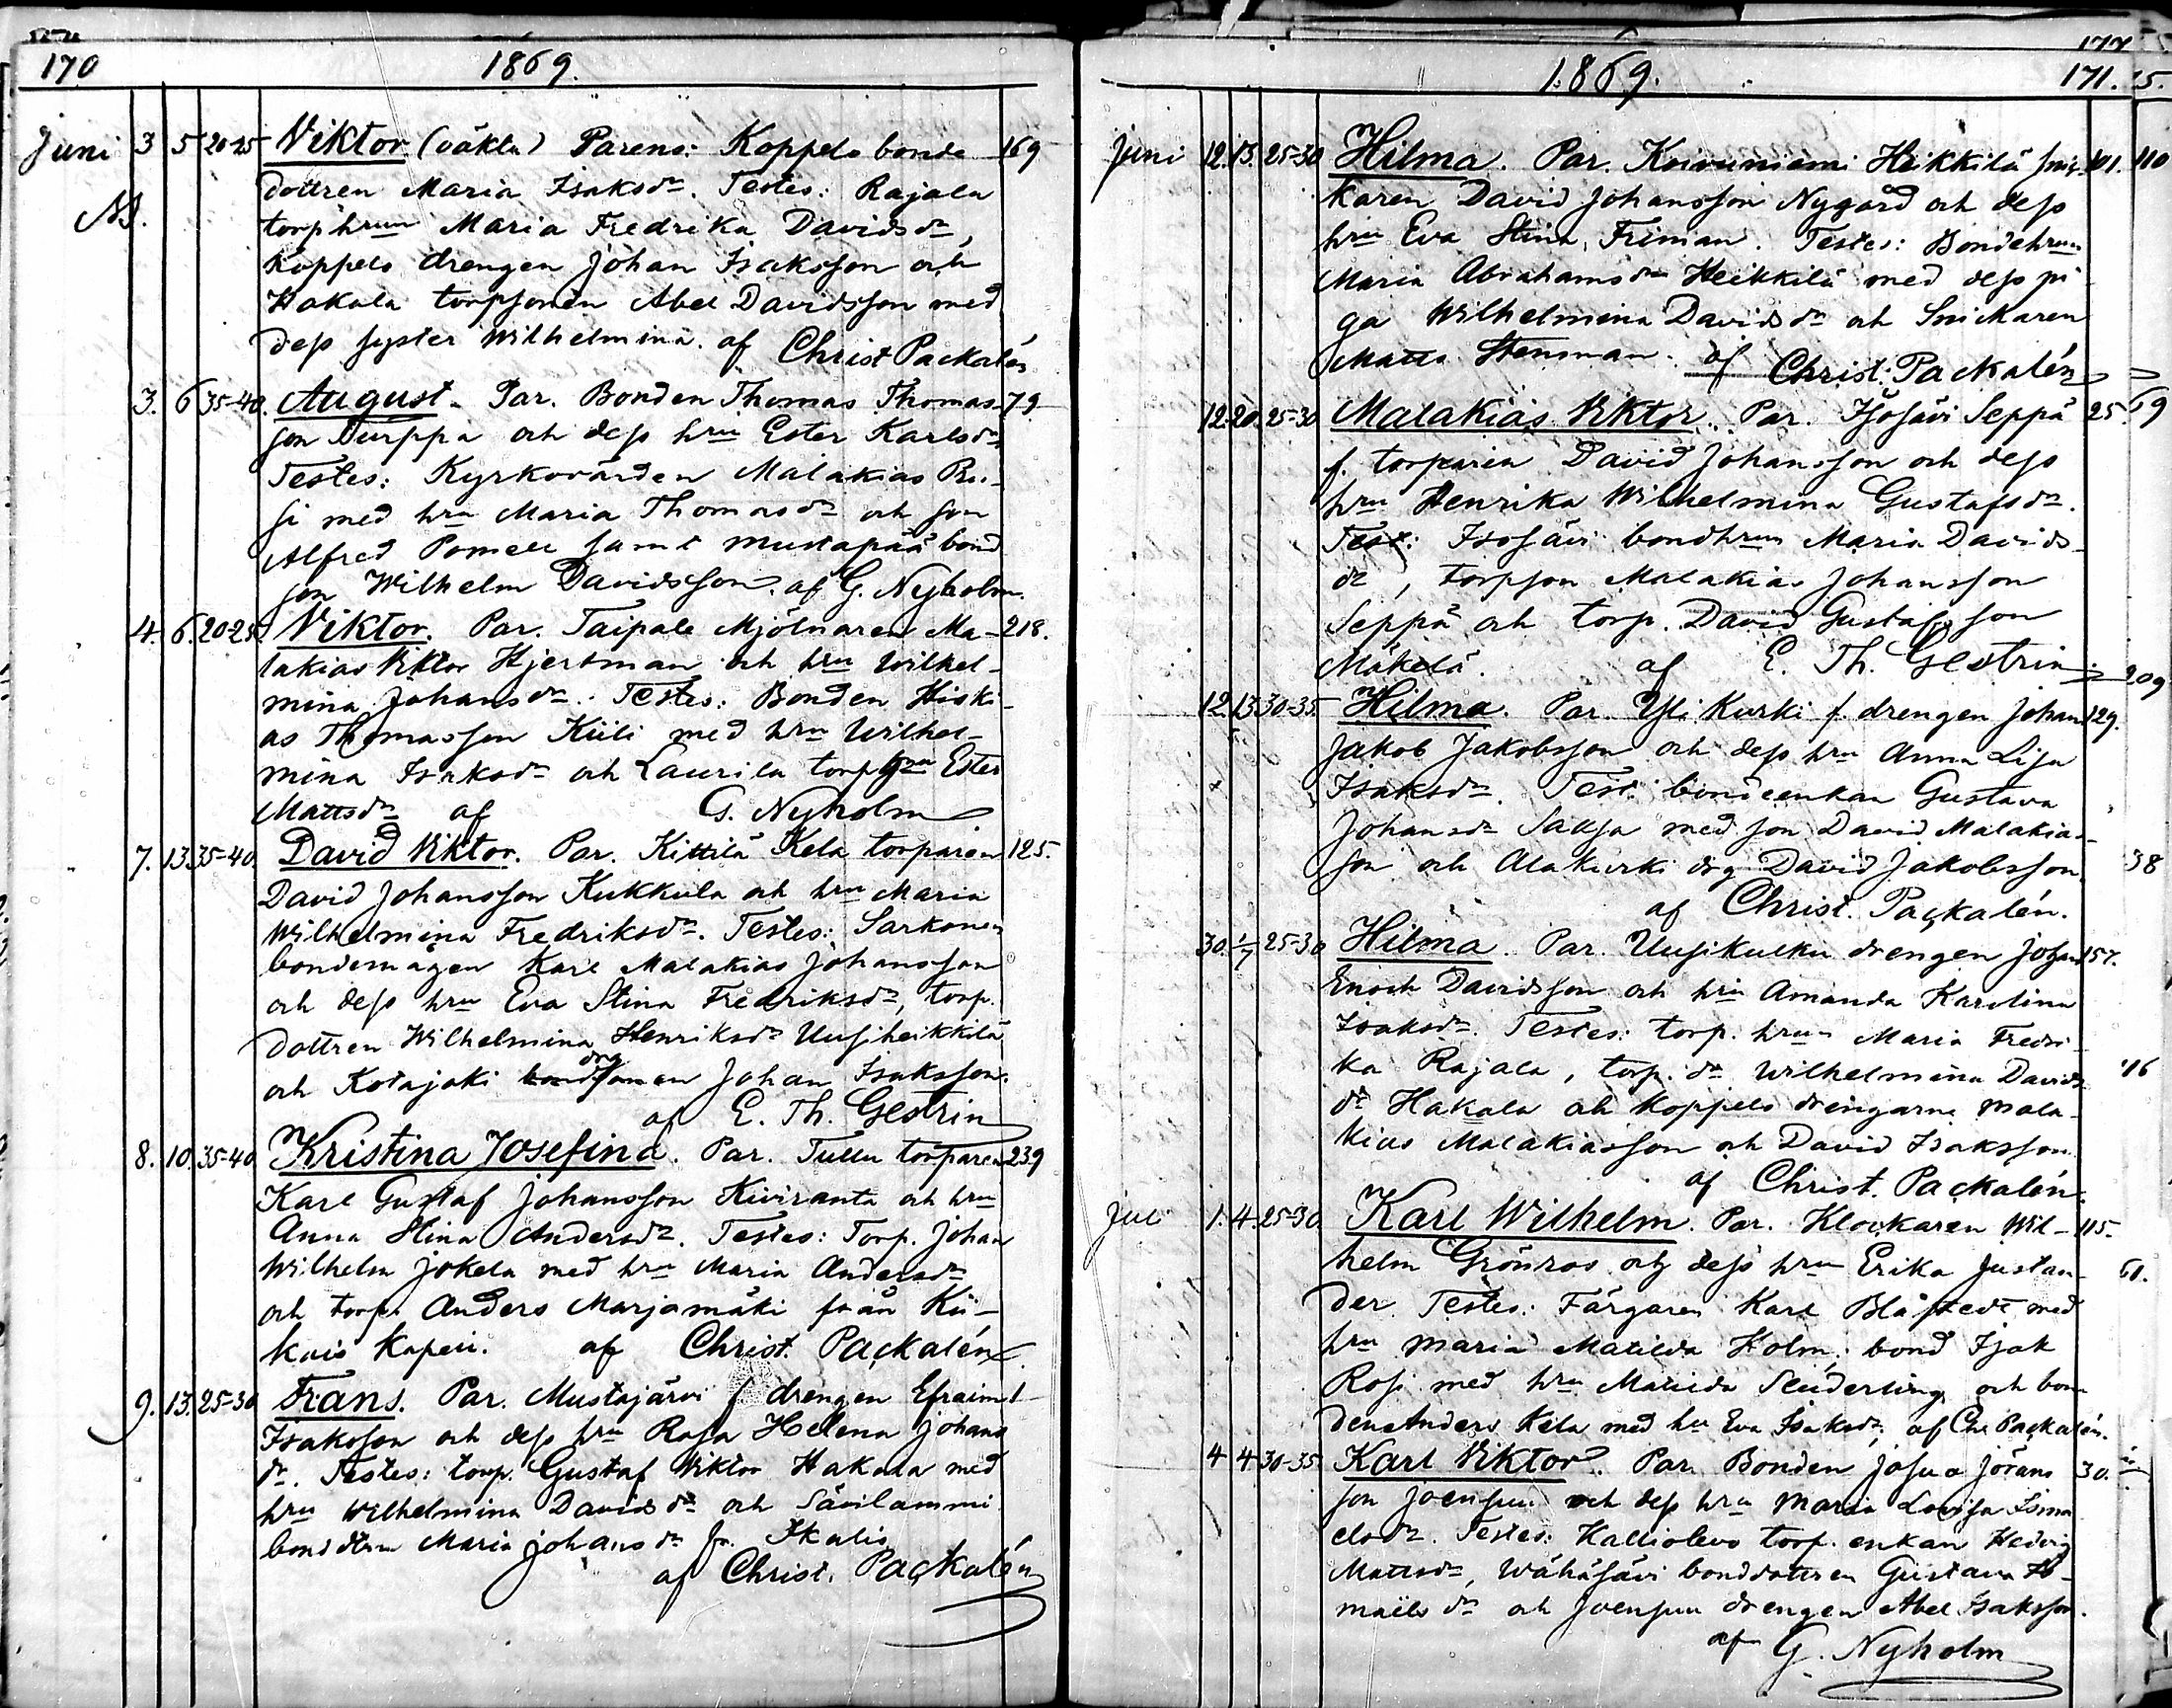 170 1869.
Juni 3 5 20-25 Viktor (oäkta) Parens: Koppelo bonde 169
dottren Maria Isaksdr. Testes: Rajala
torphrun Maria Fredrika Davidsdr,
Koppelo drengen Johan Isaksson och
Hakala torpsonen Abel Davidsson med
dess syster Wilhelmina. af Christ Packalén
3. 6 35-40. August. Par. Bonden Thomas Thomas- 79
son Nurppa och dess hru Ester Karlsdr
Testes: Kyrkovärden Malakias Ru-
si med hru Maria Thomasdr och son
Alfred Pomell samt Mustapää bond
son Wilhelm Davidsson. af G. Nyholm.
4. 6. 20-25. Viktor. Par. Taipale Mjölnaren Ma- 218.
lakias Viktor Hjertman och hru Wilhel-
mina Johansdr. Testes: Bonden Hiski-
as Thomasson Kiili med hru Wilhel-
mina Isaksdr och Laurila torphru Ester
Mattsdr af G. Nyholm
7. 13 35-40. David Viktor. Par. Kittilä Kela torparen 125.
David Johansson Kukkula och hru Maria
Wilhelmina Fredriksdr. Testes: Sarkonen
bondemågen Karl Malakias Johansson
och dess hru Eva Stina Fredriksdr, torp.
dottren Wilhelmina Henriksdr Uusiheikkilä
och Kotajoki drg Johan Isaksson.
af E. Th. Gestrin
8. 10. 35-40 Kristina Josefina. Par. Tullu torparen 239
Karl Gustaf Johansson Kiviranta och hru
Anna Stina Andersdr. Testes: Torp. Johan
Wilhelm Jokela med hru Maria Andersdr
och torp. Anders Marjamäki från Kii-
kois Kapell. af Christ. Packalén
9. 13. 25-30 Frans. Par. Mustajärvi f drengen Efraim 1
Isaksson och dess hru Rosa Helena Johans
dr. Testes: torp. Gustaf Viktor Hakala med
hru Wilhelmina Davidsdr och Sävilammi
bonddtrn Maria Johansdr fr. Ikalis
af Christ. Packalén
1869. 171.
Juni 12. 13. 25-30 Hilma. Par. Koivuniemi Heikkilä snic- 101.
karen David Johansson Nygård och dess
hru Eva Stina Friman. Testes: Bondehrun
Maria Abrahamsdr Heikkilä med dess pi
ga Wilhelmina Davidsdr och Snickaren
Matts Stensman. af Christ. Packalén
12. 20. 25-30 Malakias Viktor. Par. Isosävi Seppä 25.
f. torparen David Johansson och dess
hru Henrika Wilhelmina Gustafsdr.
Test: Isosävi bondhrun Maria Davids-
dr, torpson Malakias Johansson
Seppä och torp. David Gustafsson
Mäkelä. af E. Th. Gestrin
12. 13. 30-35. Hilma. Par. Yli Kurki f. drengen Johan 129.
Jakob Jakobsson och dess hru Anna Lisa
Isaksdr. Test. bondeenkan Gustava
Johansdr Saksa med son David Malakias-
son och Alakurki drg David Jakobsson.
af Christ. Packalén.
30. 1/7 25-30 Hilma. Par. Uusikulku drengen Johan 157.
Enoch Davidsson och hru Amanda Karolina
Isaksdr. Testes: torp. hrun Maria Fredri-
ka Rajala, torp. dr Wilhelmina Davids
dr Hakala och Koppelo drengarne Mala-
kias Malakiasson och David Isaksson.
af Christ. Packalén.
Juli 1. 4. 25-30. Karl Wilhelm. Par. Klockaren Wil- 115.
helm Grönroos och dess hru Erika Justan-
der. Testes: Färgaren Karl Blåfield med
hru Maria Matilda Holm; bond Isak
Rosi med hru Matilda Sluderling och bon-
den Anders Kela med hru Eva Isaksdr, af Chr. Packalén.
4 4 30-35 Karl Viktor. Par. Bonden Josua Jörans 30.
son Joensuu och dess hru Maria Lovisa Isma
elsdr. Testes: Kalliolevo torp. enkan Hedvig
Mattsdr, Wähäsävi bonddottren Gustava Is-
maels dr och Joensuu drengen Abel Isaksson.
af G. Nyholm